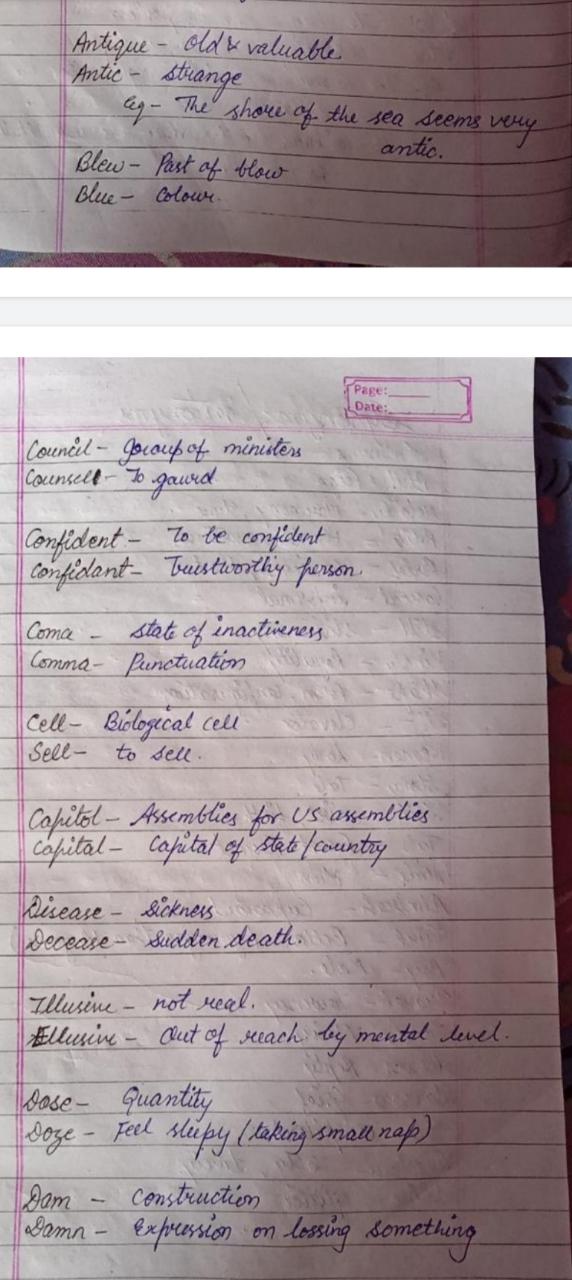 Antique - Old & valuable
Antic - Strange
eg - The shore of the sea seems very
antic.
Blew - Past of blow
Blue - Colour.
Page:
Date:
Council - group of ministers
Counsell - To gaurd
Confident - To be confident
Confidant - Trustworthy person.
Coma - state of inactiveness
Comma - Punctuation
Cell - Biological cell
Sell - to sell.
Capitol - Assemblies for US assemblies
Capital - Capital of state/country
Disease - Sickness
Decease - Sudden death.
Illusive - not real.
Ellusive - Out of reach by mental level.
Dose - Quantity
Doze - Feel sleepy (taking small nap)
Dam - Construction
Damn - Expression on lossing something